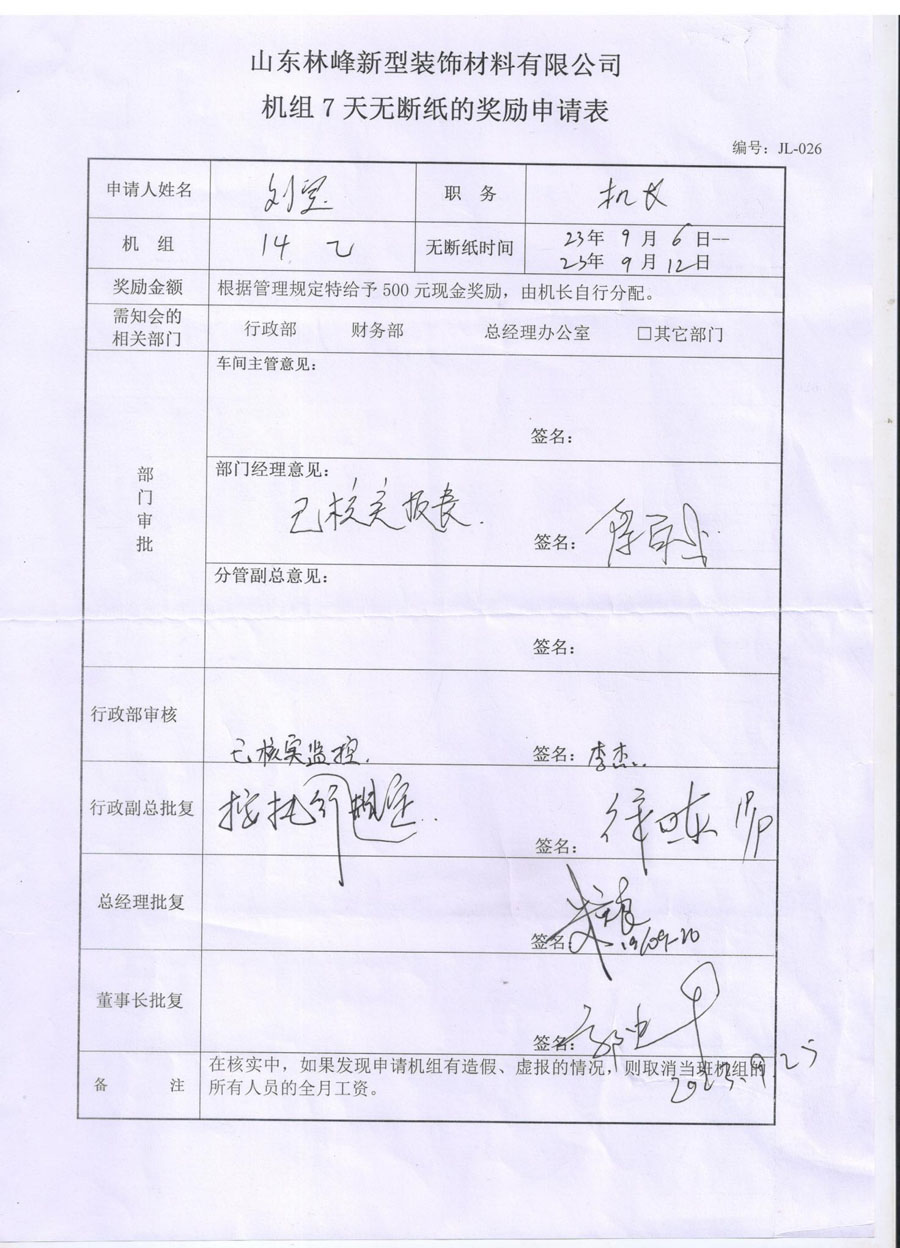 山东林峰新型装饰材料有限公司
机组 7 天无断纸的奖励申请表
编号：JL-026
申请人姓名 刘宝 职 务 机长
机 组 14 乙 无断纸时间 23年 9 月 6 日--
23年 9 月 12日
奖励金额 根据管理规定特给予 500 元现金奖励，由机长自行分配。
需知会的
相关部门 行政部 财务部 总经理办公室 □其它部门
部门审批
车间主管意见：
签名：
部门经理意见：
已核实
签名：
分管副总意见：
签名：
行政部审核 已核实监控. 签名：李杰
行政副总批复 按执行规定 签名：
总经理批复
签名
董事长批复
签名：
2023.9.25
备 注 在核实中，如果发现申请机组有造假、虚报的情况，则取消当班机组的
所有人员的全月工资。